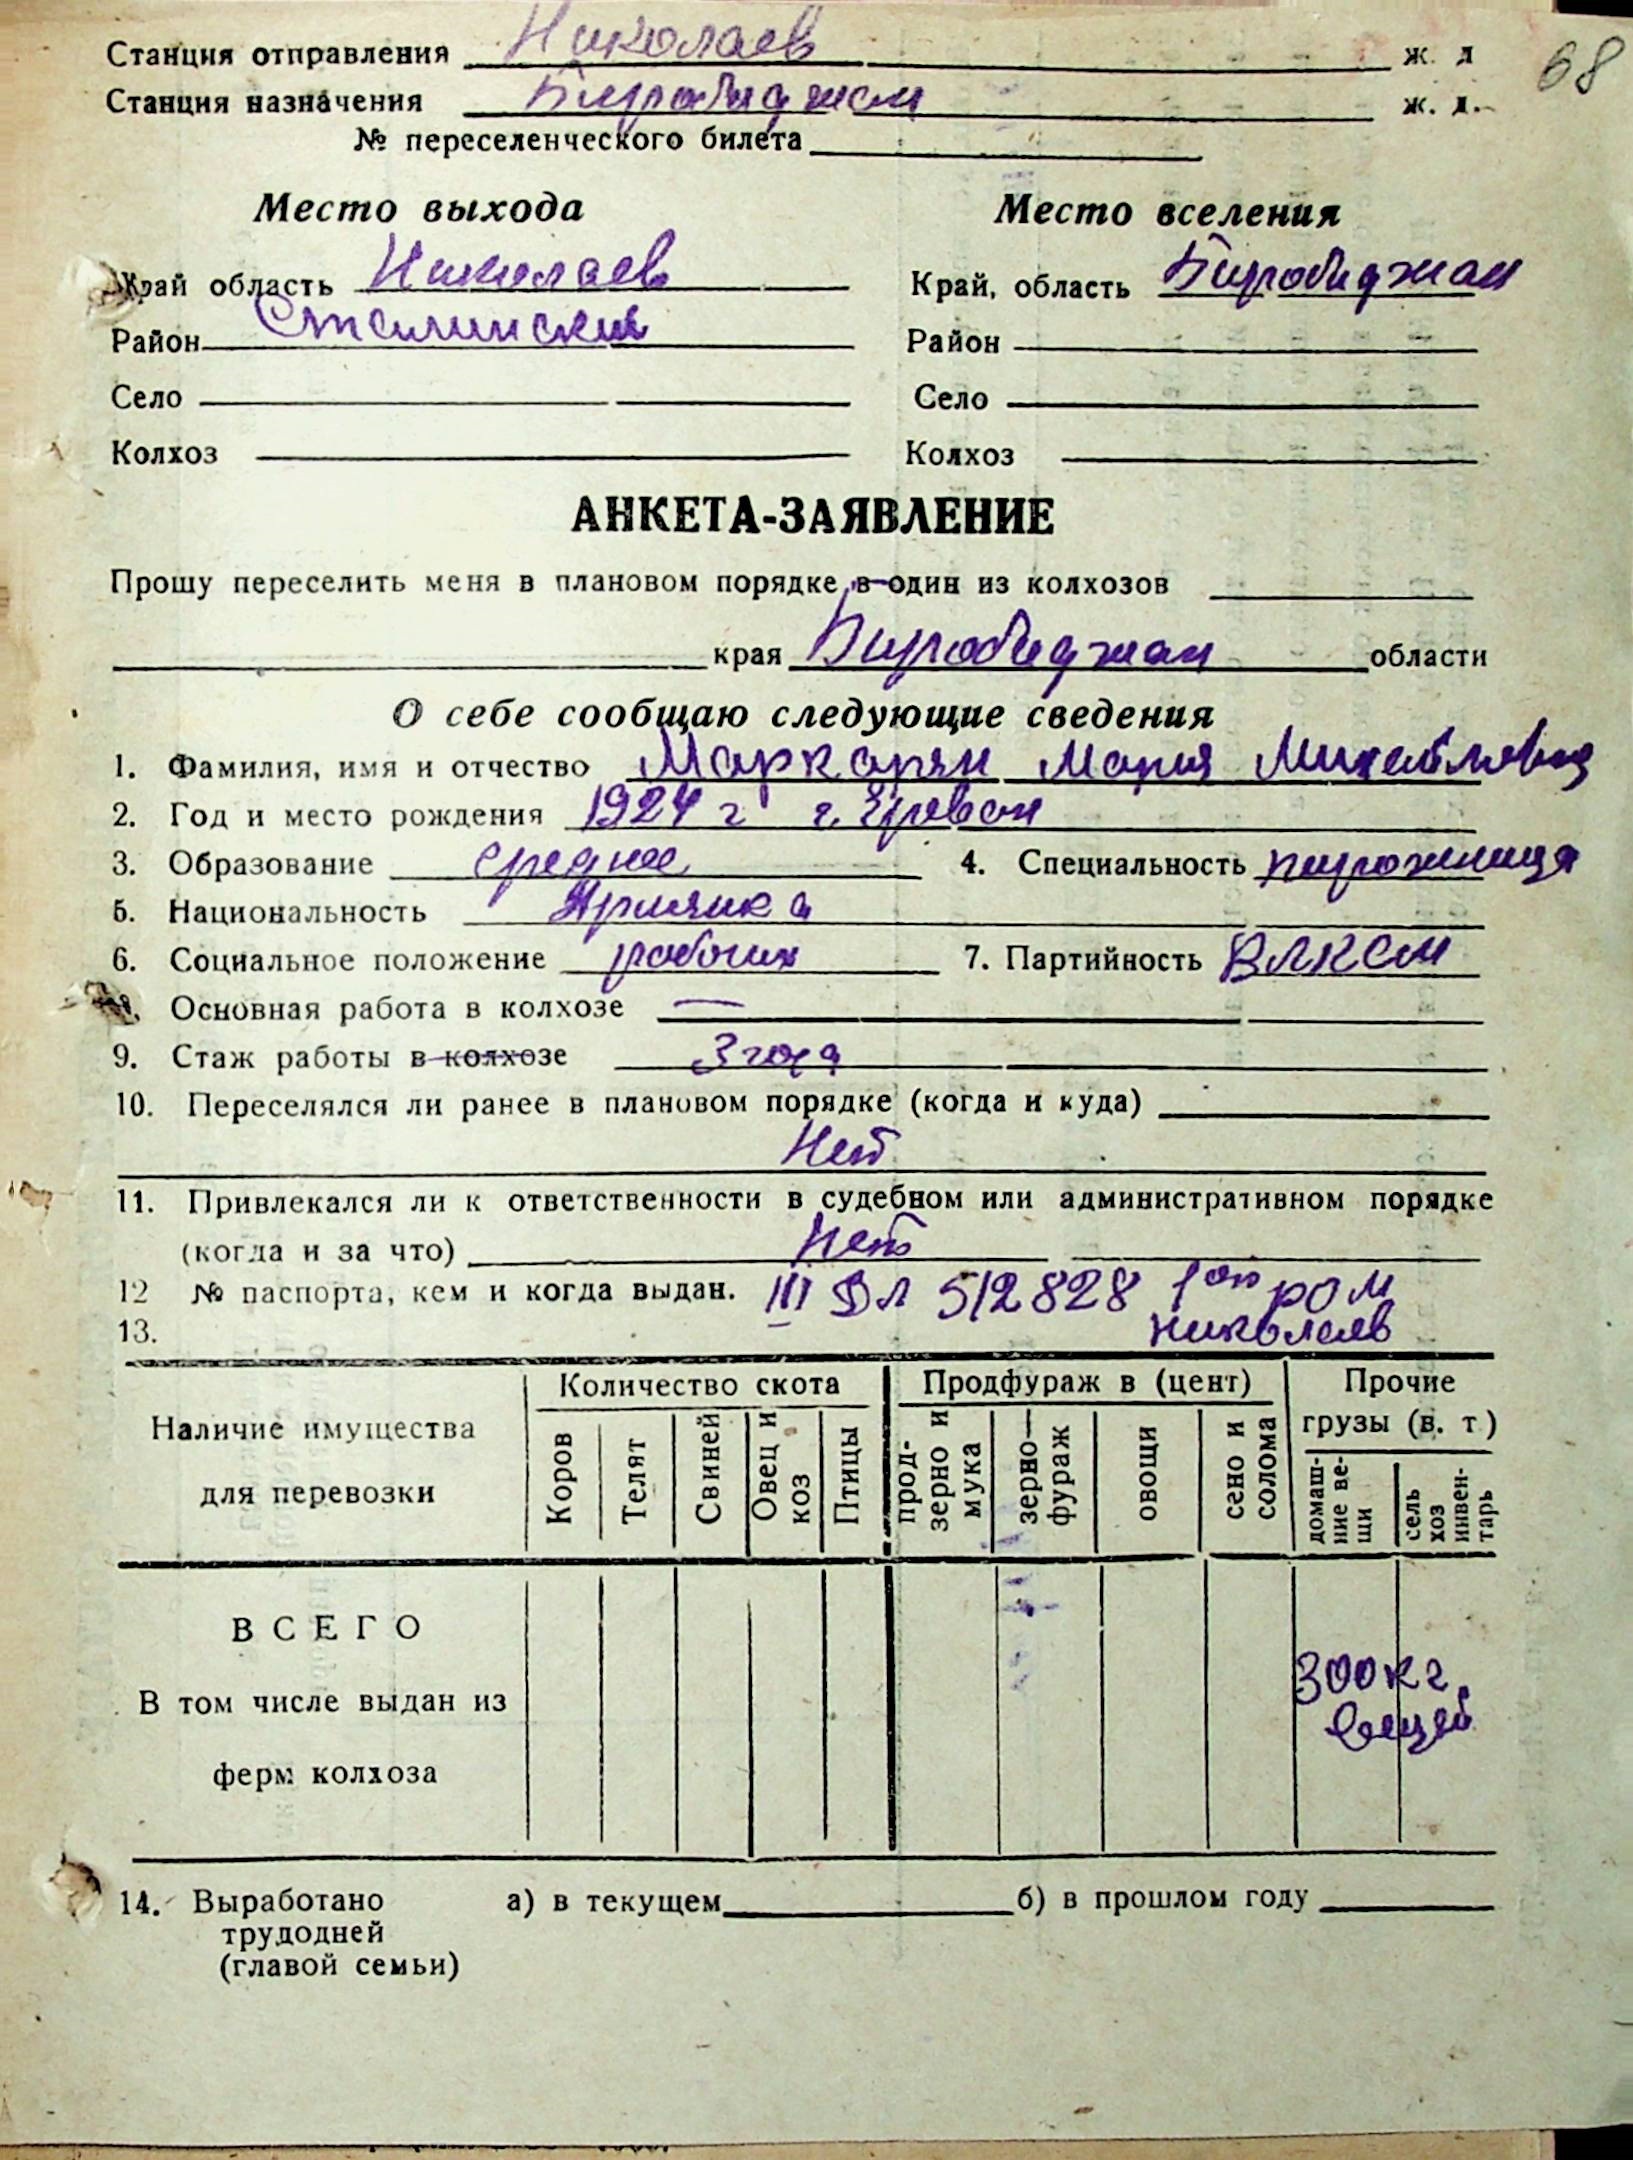 68
Станция отправления Николаев ж. д
Станция назначения Биробиджан ж. д.
№ переселенческого билета
Место выхода Место вселения
Край область Николаев Край, область Биробиджан
Район Сталинский Район
Село Село
Колхоз Колхоз
АНКЕТА-ЗАЯВЛЕНИЕ
Прошу переселить меня в плановом порядке в один из колхозов
края Биробиджан области
О себе сообщаю следующие сведения
1. Фамилия, имя и отчество Маркарян Мария Михайловна
2. Год и место рождения 1924 г г. Ереван
3. Образование среднее 4. Специальность пирожница
5. Национальность Армянка
6. Социальное положение рабочих 7. Партийность ВЛКСМ
Основная работа в колхозе —
9. Стаж работы в колхозе 3 года
10. Переселялся ли ранее в плановом порядке (когда и куда)
Нет
11. Привлекался ли к ответственности в судебном или административном порядке
(когда и за что) Нет
12 № паспорта, кем и когда выдан. III ДЛ 512828 1ым РОМ
13. Николаев
Наличие имущества для перевозки
Количество скота
Продфураж в (цент)
Прочие грузы (в. т)
Коров
Телят
Свиней
Овец и коз
Птицы
прод-зерно и мука
зерно—фураж
овощи
сено и солома
домаш-ние ве-щи
сель хоз инвен-тарь
ВСЕГО
В том числе выдан из
ферм колхоза
300 кг.
вещей
14. Выработано а) в текущем б) в прошлом году
трудодней
(главой семьи)